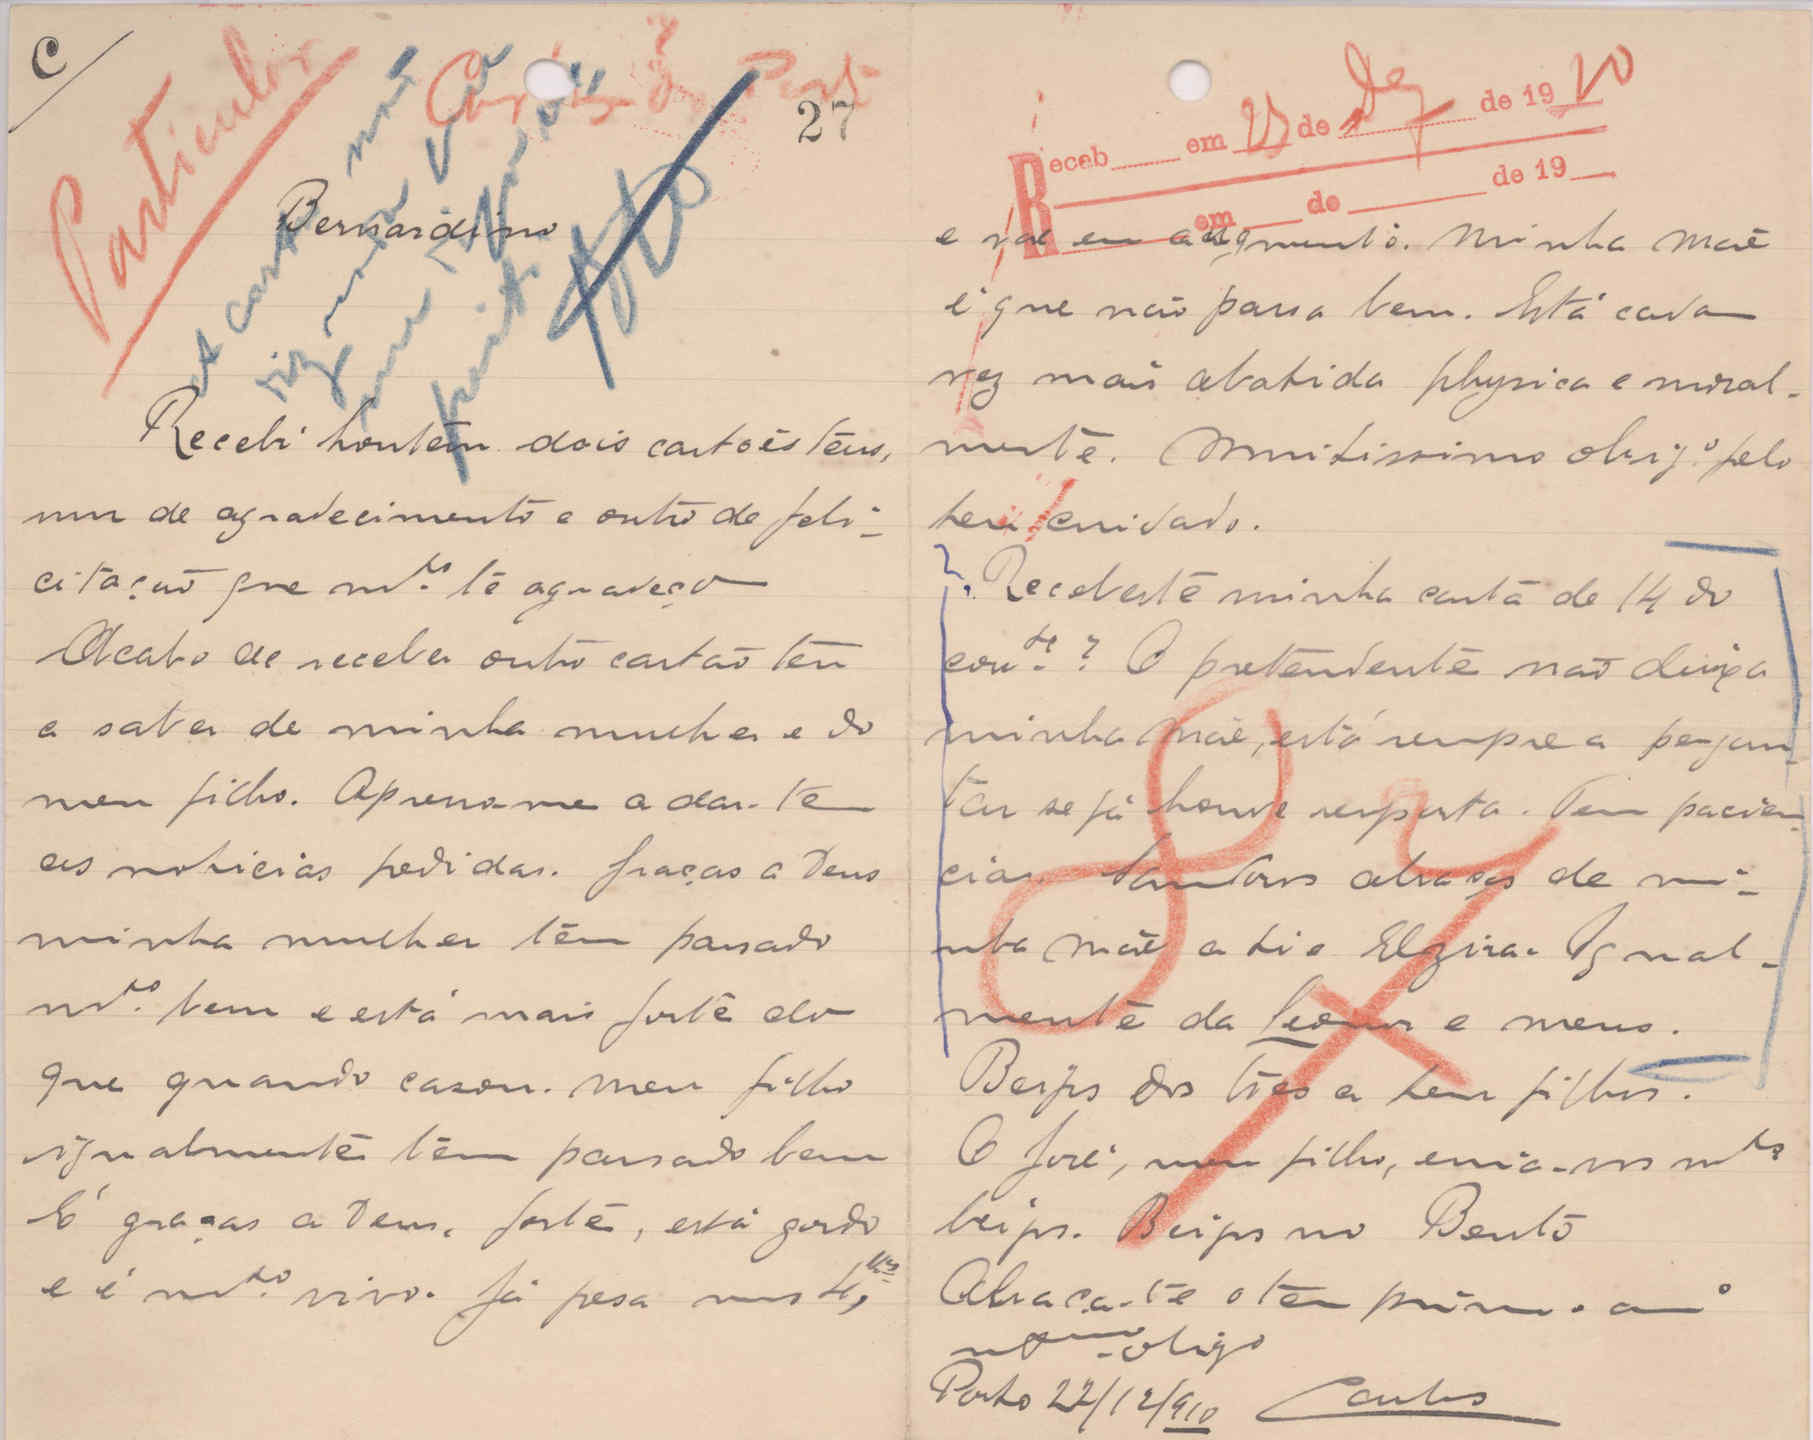 C
Particular
27
Bernardino
Recebi hontem dois cartões teus,
um de agradecimento e outro de feli-
citação que mto. te agradeço
Acabo de receber outro cartão teu
a saber de minha mulher e do
meu filho. Apresso-me a dar-te
as noticias pedidas. Graças a Deus
minha mulher tem passado
mto. bem e está mais forte do
que quando casou. Meu filho
igualmente tem passado bem
É graças a Deus, forte, está gordo
e é mto. vivo. Já pesa uns
Receb em 23 de Dez de 1910
em de de 19
e vae em augmento. Minha Mãe
é que não passa bem. Está cada
vez mais abatida physica e moral-
mente. Muitissimo obrigo. pelo
teu cuidado.
Recebeste minha carta de 14 do
corrte.? O pretendente não deixa
minha Mãe, está sempre a pergun-
tar se já houve resposta. Tem pacien-
cia. Saudosos abraços de mi-
nha Mãe a ti e Elzira. Igual-
mente da Leonor e meus.
Beijos dos tres a teus filhos.
O José, meu filho, envia-vos mtos
beijos. Beijos no Bento
Abraça-te o teu primo e amo
mto obrigo
Porto 22/12/910 Carlos